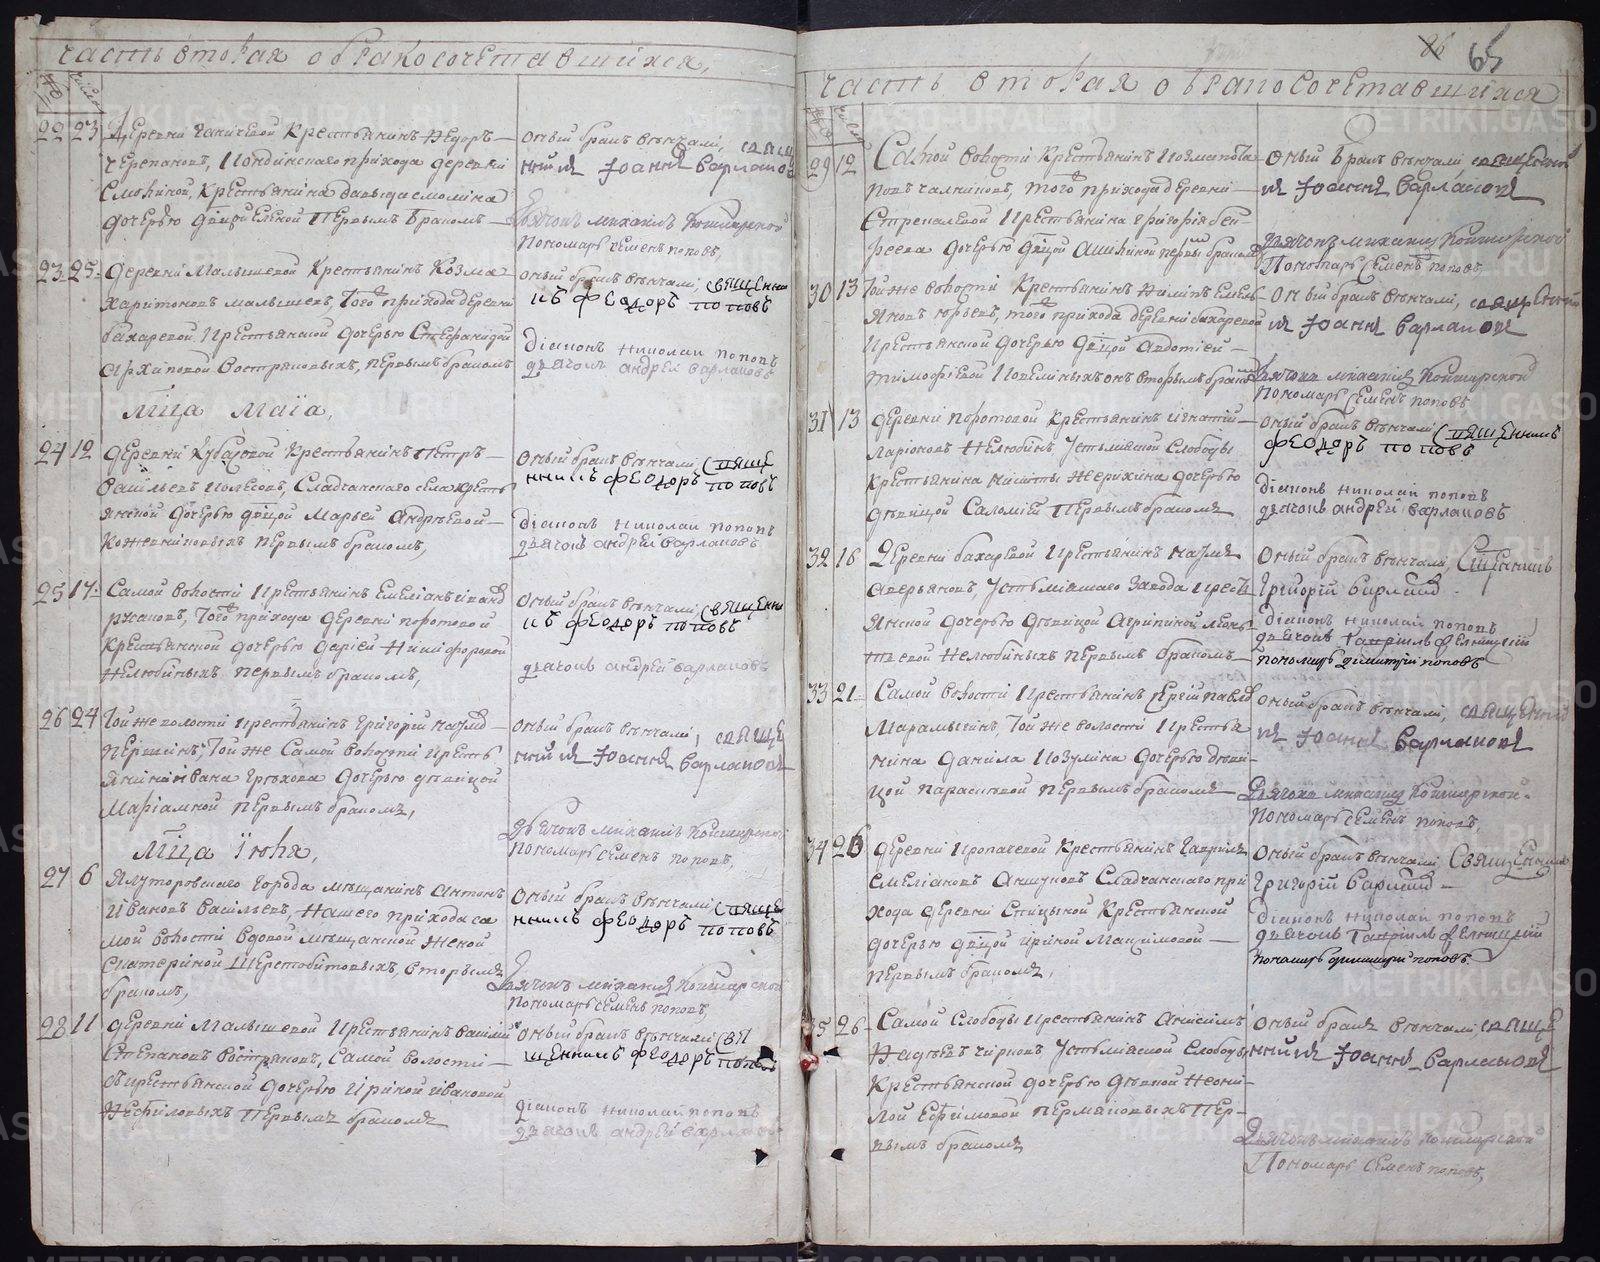 часть вторая о бракосочетавшихся,
22 23 Деревни Ганичевой Крестьянинъ Федоръ
Черепановъ, Иондинскаго прихода деревни
Смолиной, Крестьянина Давыда Смолина
дочерью двцой Еленой Первымъ бракомъ
оный бракъ вѣнчали, священ
никъ Іоаннъ Варлаковъ
Дьячокъ михаилъ Кошкарской
Пономарь семенъ поповъ,
23 25 Деревни Малышевой Крестьянинъ Козма
Харитоновъ малышевъ, Того прихода деревни
бахаревой, Крестьянской дочерью Стефанидой
Архиповой Востряковыхъ, первымъ бракомъ
оный бракъ вѣнчали, священни
къ феодоръ поповъ
діаконъ николай поповъ
дьячокъ андрей варлаковъ
мца Маіа,
24 12 деревни Кубасовой Крестьянинъ Петръ
Васильевъ, Сладчанскаго села кресть
янской дочерью двцой Марьей Андрѣевой
Кожевниковыхъ первымъ бракомъ,
Оный бракъ вѣнчали, Свяще
нникъ феодоръ поповъ
діаконъ николай поповъ
дьячокъ андрей варлаковъ
25 17 Самой волости Крестьянинъ Емеліанъ
Того прихода деревни поротовой
Крестьянской дочерью даріей Никифоровой
Нелюбиныхъ первымъ бракомъ,
Оный бракъ вѣнчали, Священни
къ феодоръ поповъ
дьячокъ андрей варлаковъ
26 24 Той же волости крестьянинъ Григорій наумовъ
першинъ, Той же Самой волости кресть
янина ивана Грехова дочерью дѣвицей
Маріамной первымъ бракомъ,
Оный бракъ вѣнчали, свяще
нникъ Іоаннъ Варлаковъ
Дьячокъ михаилъ Кошкарской
Пономарь семенъ поповъ,
мца Іюня,
27 6 Ялуторовскаго города мѣщанинъ Антонъ
Ивановъ Васильевъ, нашего прихода са
мой волости вдовой мѣщанской женой
Катериной Шерстобитовыхъ, вторымъ
бракомъ,
Оный бракъ вѣнчали, Священ
никъ феодоръ поповъ
Дьячокъ михаилъ Кошкарской
Пономарь семенъ поповъ,
28 11 деревни Малышевой Крестьянинъ Василій
Степановъ Востряковъ, Самой волости
Крестьянской дочерью Ириной Ивановой
Нефиловыхъ Первымъ бракомъ
Оный бракъ вѣнчали Свя
щенникъ феодоръ поповъ
діаконъ николай поповъ
дьячокъ андрей варлаковъ
86 65
часть вторая о бракосочетавшихся
29 12 Самой волости Крестьянинъ
Чалкиновъ, того прихода деревни
Стрекаловой Крестьянина Григорія Ев
феева дочерью двцой Акилиной первы бракомъ
Оный бракъ вѣнчали священни
къ Іоаннъ Варлаковъ
Дьячокъ михаилъ Кошкарской
Пономарь Семенъ поповъ,
30 13 Той же волости Крестьянинъ Филипъ Емель
яновъ юрьевъ, того прихода деревни бахаревой
Крестьянской дочерью двцой авдотіей
тимофѣевой онъ вторымъ бракомъ
Оный бракъ вѣнчали, священни
къ Іоаннъ Варлаковъ
Дьячокъ михаилъ Кошкарской
Пономарь Семенъ поповъ
31 13 деревни поротовой Крестьянинъ игнатій
Ларіоновъ Нелюбинъ, Устьмияской Слободы
Крестьянина никиты Жерихина дочерью
дѣвицой Саломіей Первымъ бракомъ
Оный бракъ вѣнчали Священникъ
феодоръ поповъ
діаконъ николай поповъ
дьячокъ андрей варлаковъ
32 16 Деревни бахаревой Крестьянинъ наумъ
Аверьяновъ, Устьмияскаго Завода кресть
янской дочерью дѣвицой Агрипиной леонь
тьевой Нелюбиныхъ первымъ бракомъ
Оный бракъ вѣнчали, Сщенникъ
Григорій Варлаковъ
діаконъ николай поповъ
дьячокъ
пономарь димитрій поповъ
33 21 Самой волости Крестьянинъ Ергій павловъ
Марамыгинъ, Той же волости Крестья
нина Данила Козулина дочерью дѣви
цой Парасковой Первымъ бракомъ
Оный бракъ вѣнчали, священни
къ Іоаннъ Варлаковъ
Дьячокъ михаилъ Кошкарской
Пономарь Семенъ поповъ,
34 26 деревни Кропачевой Крестьянинъ Гаврилъ
Емеліановъ Сладчанскаго при
хода деревни Спицыной Крестьянской
дочерью двцой Ириной Максимовой
Первымъ бракомъ,
Оный бракъ вѣнчали, Священникъ
Григорій Варлаковъ
діаконъ николай поповъ
дьячокъ
пономарь димитрій поповъ
35 26 Самой Слободы Крестьянинъ Анисимъ
Фадѣевъ чирковъ, Устьмияской Слободы
Крестьянской дочерью дѣвкой Неони
лой Ефимовой пермяковыхъ Пер
вымъ бракомъ
Оный бракъ вѣнчали, свяще
нникъ Іоаннъ Варлаковъ
Дьячокъ михаилъ Кошкарской
Пономарь Семенъ поповъ,
METRIKI.GASO-URAL.RU